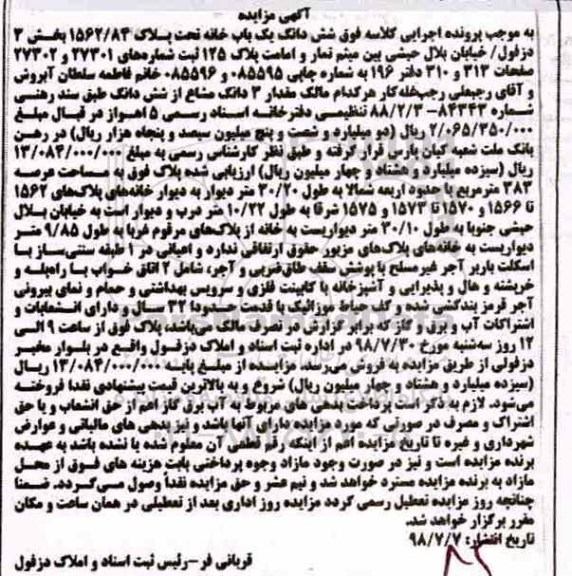 آگهی مزایده
به موجب پرونده اجرایی کلاسه فوق شش دانگ یک باب خانه تحت پلاک ۱۵۶۲/۸۴ بخش ۳
دزفول/ خیابان بلال حبشی بین میثم تمار و امامت پلاک ۱۲۵ ثبت شماره‌های ۲۷۳۰۱ و ۲۷۳۰۲
صفحات ۳۱۳ و ۳۱۰ دفتر ۱۹۶ به شماره چاپی ۰۸۵۵۹۵ و ۰۸۵۵۹۶ خانم فاطمه سلطان آبروش
و آقای رجبعلی رجب‌خله‌کار هرکدام مالک مقدار ۳ دانگ مشاع از شش دانگ طبق سند رهنی
شماره ۸۴۳۴۳- ۸۸/۲/۳ تنظیمی دفترخانه اسناد رسمی ۵ اهواز در قبال مبلغ
۲/۰۶۵/۳۵۰/۰۰۰ ریال (دو میلیارد و شصت و پنج میلیون سیصد و پنجاه هزار ریال) در رهن
بانک ملت شعبه کیان پارس قرار گرفته و طبق نظر کارشناس رسمی به مبلغ ۱۳/۰۸۴/۰۰۰/۰۰۰
ریال (سیزده میلیارد و هشتاد و چهار میلیون ریال) ارزیابی شده پلاک فوق به مساحت عرصه
۲۸۳ مترمربع با حدود اربعه شمالا به طول ۳۰/۲۰ متر دیوار به دیوار خانه‌های پلاک‌های ۱۵۶۲
تا ۱۵۶۶ و ۱۵۷۰ تا ۱۵۷۳ و ۱۵۷۵ شرقا به طول ۱۰/۲۲ متر درب و دیوار است به خیابان بلال
حبشی جنوبا به طول ۳۰/۱۰ متر دیواریست به خانه از پلاک‌های مرقوم غربا به طول ۹/۸۵ متر
دیواریست به خانه‌های پلاک‌های مزبور حقوق ارتفاقی ندارد و اعیانی در ۱ طبقه سنتی‌ساز با
اسکلت باربر آجر غیرمسلح با پوشش سقف طاق‌ضربی و آجر، شامل ۲ اتاق خواب با راه‌پله و
خرپشته و هال و پذیرایی و آشپزخانه با کابینت فلزی و سرویس بهداشتی و حمام و نمای بیرونی
آجر قرمز بندکشی شده و کف حیاط موزائیک با قدمت حدودا ۳۲ سال و دارای انشعابات و
اشتراکات آب و برق و گاز که برابر گزارش در تصرف مالک می‌باشد، پلاک فوق از ساعت ۹ الی
۱۲ روز سه‌شنبه مورخ ۹۸/۷/۳۰ در اداره ثبت اسناد و املاک دزفول واقع در بلوار مخبر
دزفولی از طریق مزایده به فروش می‌رسد. مزایده از مبلغ پایه ۱۳/۰۸۴/۰۰۰/۰۰۰ ریال
(سیزده میلیارد و هشتاد و چهار میلیون ریال) شروع و به بالاترین قیمت پیشنهادی نقدا فروخته
می‌شود. لازم به ذکر است پرداخت بدهی های مربوط به آب برق گاز اعم از حق انشعاب و یا حق
اشتراک و مصرف در صورتی که مورد مزایده دارای آنها باشد و نیز بدهی های مالیاتی و عوارض
شهرداری و غیره تا تاریخ مزایده اعم از اینکه رقم قطعی آن معلوم شده یا نشده باشد به عهده
برنده مزایده است و نیز در صورت وجود مازاد وجوه پرداختی بابت هزینه های فوق از محل
مازاد به برنده مزایده مسترد خواهد شد و نیم عشر و حق مزایده نقداً وصول می‌گردد. ضمنا
چنانچه روز مزایده تعطیل رسمی گردد مزایده روز اداری بعد از تعطیلی در همان ساعت و مکان
مقرر برگزار خواهد شد.
تاریخ انتشار: ۹۸/۷/۷
قربانی فر -رئیس ثبت اسناد و املاک دزفول